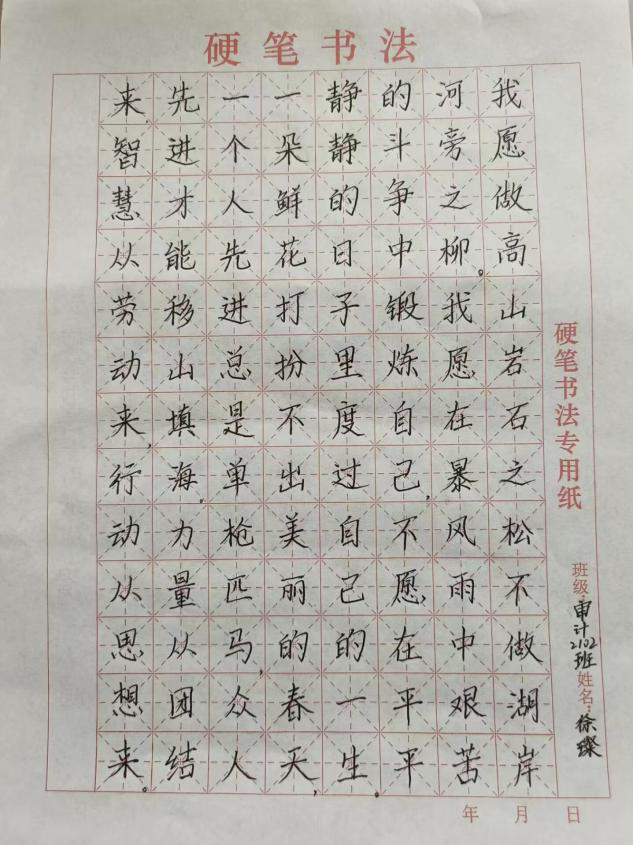 硬笔书法
我愿做高山岩石之松不做湖岸
河旁之柳。我愿在暴风雨中艰苦
的斗争中锻炼自己,不愿在平平
静静的日子里度过自己的一生。
一朵鲜花打扮不出美丽的春天,
一个人先进总是单枪匹马,众人
先进才能移山填海,力量从团结
来智慧从劳动来,行动从思想来。
硬笔书法专用纸
班级:审计2102班姓名:徐璨
年 月 日